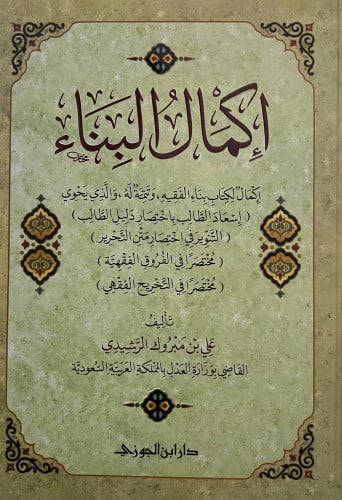 إكمال البناء
إكمال لكتاب بناء الفقيه، وتتمة له، والذي يحوي
( إسعاد الطالب باختصار دليل الطالب )
( التنوير في اختصار متن التحرير )
( مختصرا في الفروق الفقهية )
( مختصرا في التخريج الفقهي )
تأليف
علي بن مبروك الرشيدي
القاضي بوزارة العدل بالمملكة العربية السعودية
دار ابن الجوزي